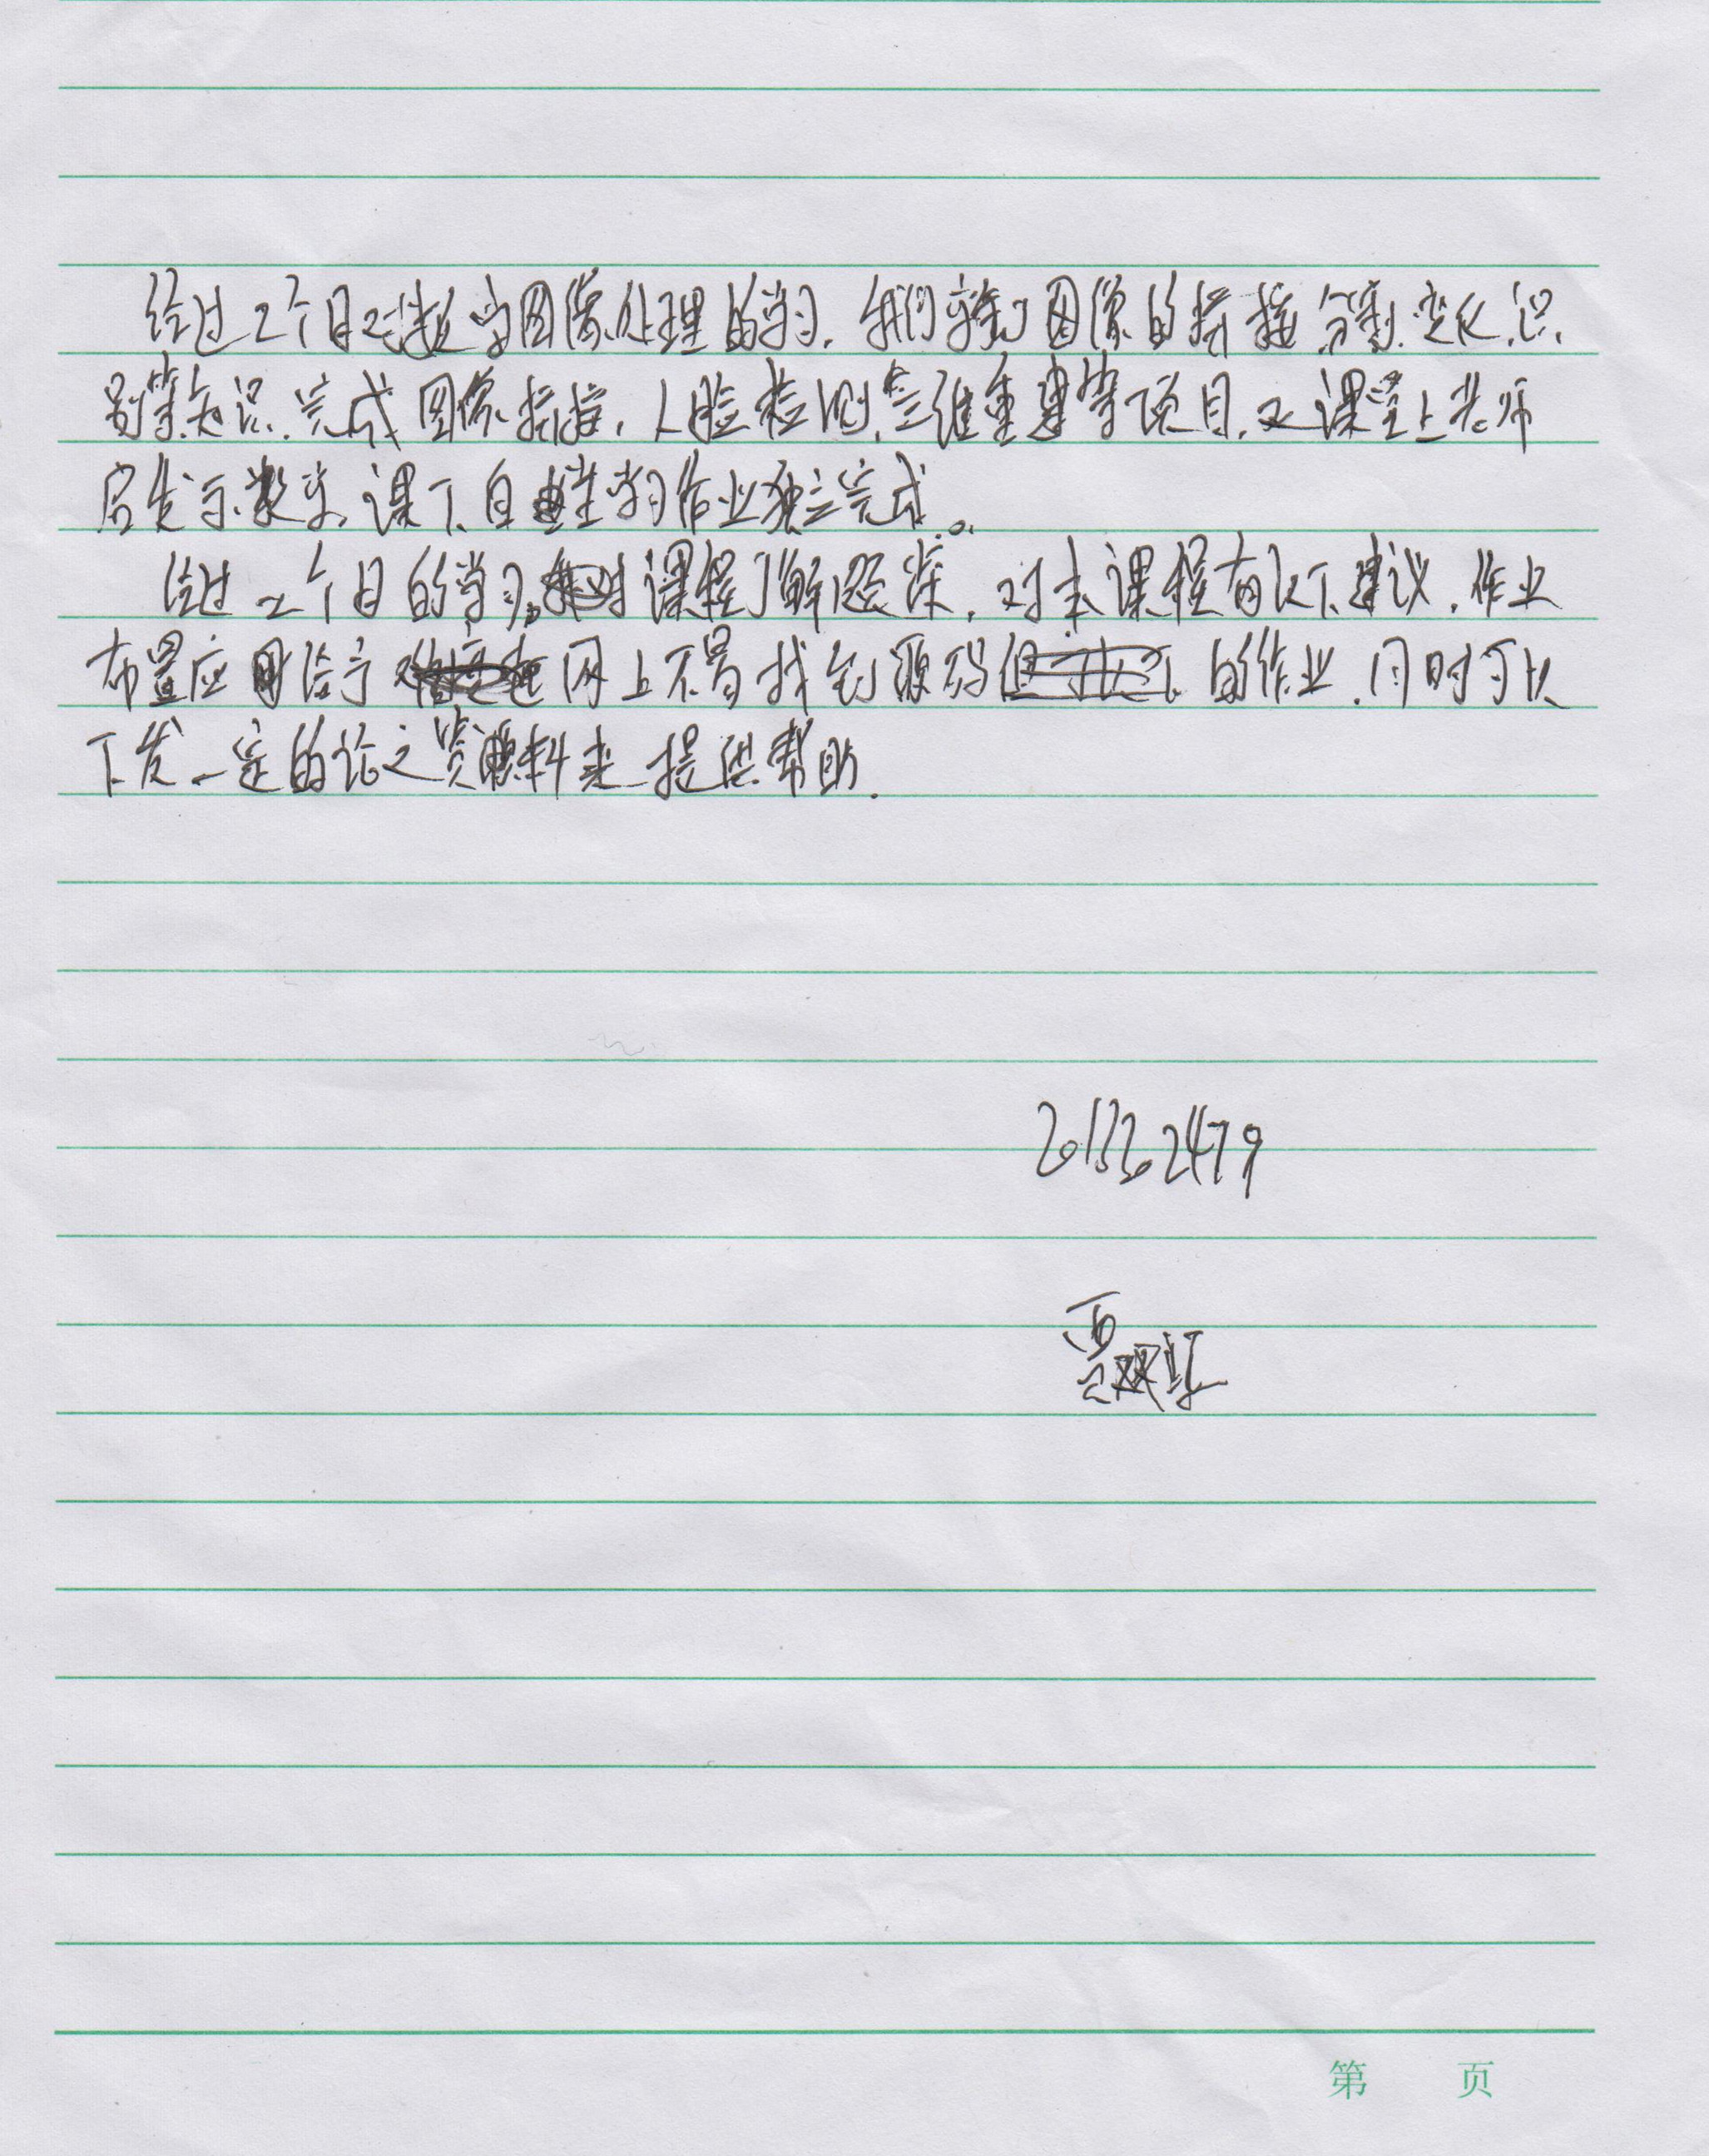 经过2个月对数字图像处理的学习,我们学到了图像的拼接、分割、变化、识
别等知识,完成图像拼接,人脸检测,三维重建等项目,课堂上老师
启发示教学,课下自主学习作业独立完成。
经过2个月的学习,课程了解颇深,对本课程有以下建议,作业
布置应给予网上不易找到源码的作业,同时可以
下发一定的论文资料来提供帮助.
20132479
贾双
第 页